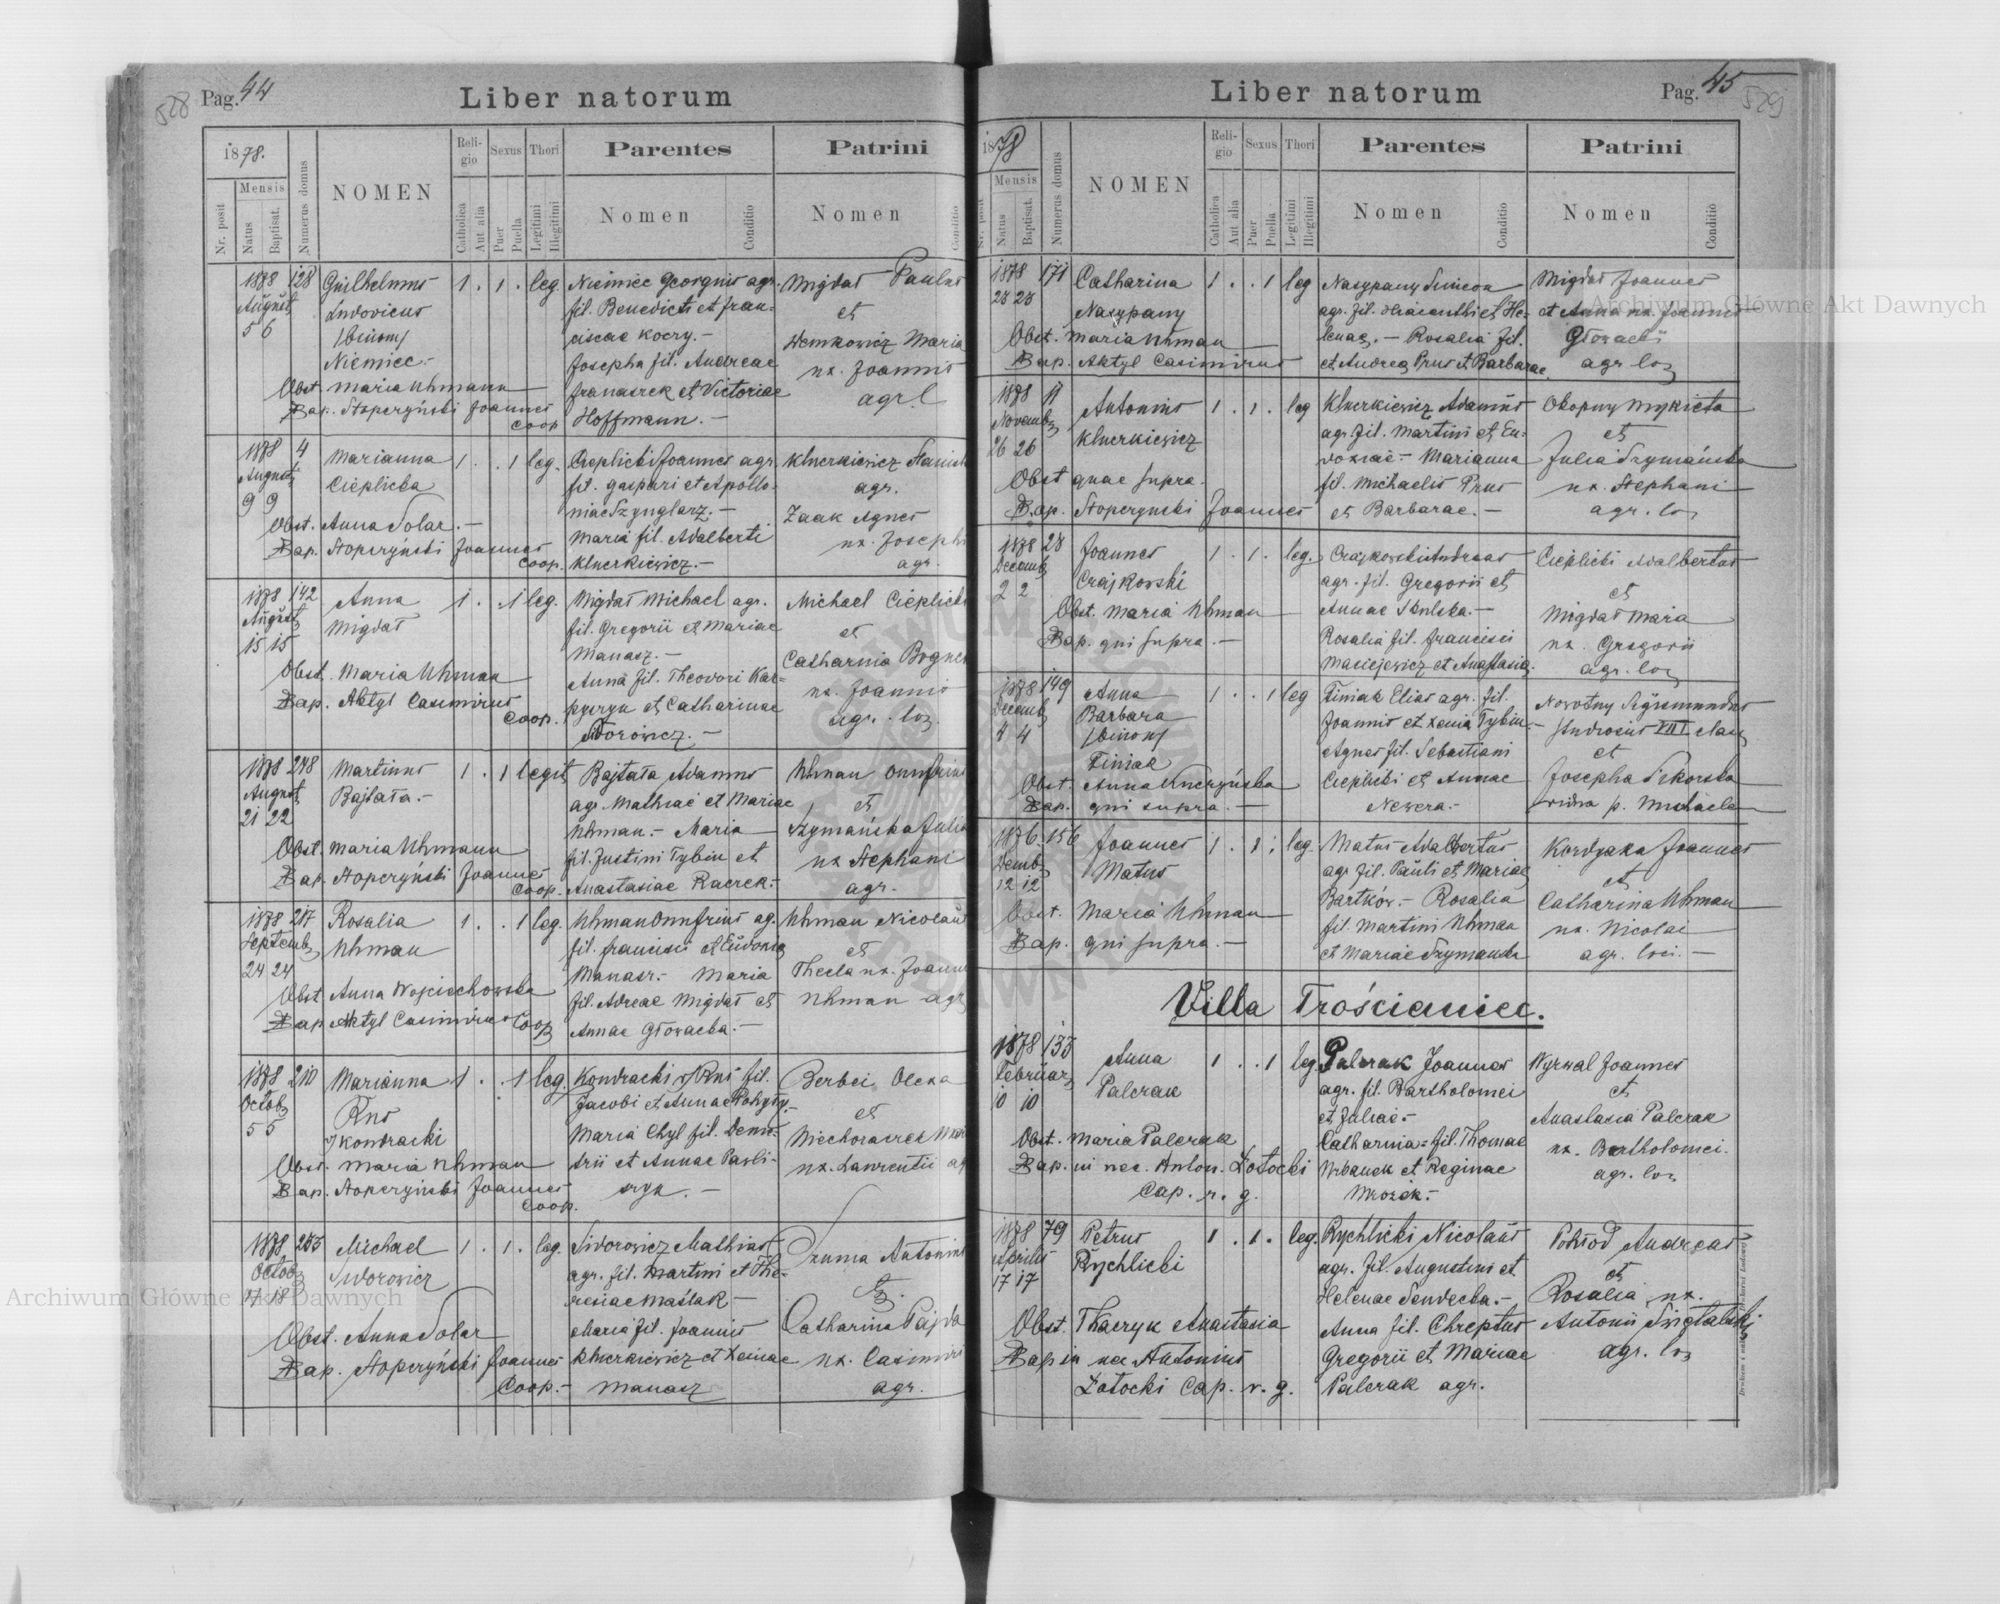 528 Pag. 44
Liber natorum
1878.
Nr. posit
Mensis
Natus
Baptisat.
Numerus domus
NOMEN
Religio
Catholica
Aut alia
Sexus
Puer
Puella
Thori
Legitimi
Illegitimi
Parentes
Nomen
Conditio
Patrini
Nomen
Conditio
1878 128 Guilhelmus 1 . 1 . leg Niemiec Georgius agr. Migdał Paulus
August Ludovicus fil. Benedicti et Fran- et
5 6 /binom/ ciscae Koczy.- Demkowicz Maria
Niemiec.- Josepha fil. Andreae ux. Joannis
Obst. Maria Uhmann Franaszek et Victoriae agr.
Bap. Stoperzyński Joannes Coop Hoffmann.-
1878 4 Marianna 1 . . 1 leg. Cieplicki Joannes agr. Kluczkiewicz
August Cieplicka fil. Gaspari et Apollo- agr.
9 9 niae Szynglarz.- Zaak Agnes
Obst. Anna Solar.- Maria fil. Adalberti ux. Josephi
Bap. Stoperzyński Joannes Coop. Kluczkiewicz.- agr.
1878 142 Anna 1 . . 1 leg. Migdał Michael agr. Michael Cieplicki
August Migdał fil. Gregorii et Mariae et
15 15 Manasz.- Catharina
Obst. Maria Uhman Anna fil. Theodori Kar- ux. Joannis
Bap. Aktyl Casimirus Coop. et Catharinae agr. loc
Sidorowicz.-
1878 248 Martinus 1 . 1 legit Bajtała Adamus Uhman Onufrius
August Bajtała.- agr. Mathiae et Mariae et
21 22 Uhman.- Maria Szymańska Julia
Obst. Maria Uhmann fil. Justini Tybin et ux Stephani
Bap. Stoperzyński Joannes Coop. Anastasiae Raczek.- agr.
1878 217 Rosalia 1 . . 1 leg. Uhman Onufrius ag. Uhman Nicolaus
Septemb Uhman fil. Francisci et Eudoxia et
24 24 Manasz.- Maria Thecla ux. Joannis
Obst Anna Wojciechowska fil. Adreae Migdał et Uhman agr
Bap Aktyl Casimirus Coop Annae Głowacka.-
1878 210 Marianna 1 . . 1 leg. Kondracki v/ Rus fil. Berbei Olexa
Octob Rus Jacobi et Annae et
5 5 / Kondracki Maria Chyl fil. Deme-
Obst. Maria Uhman trii et Annae Pawli- ux. Laurentii
Bap. Stoperzyński Joannes Coop. szyn.-
1878 233 Michael 1 . 1 . leg. Sidorowicz Mathias Antonius
Octob Sidorowicz agr. fil. Martini et The- et
17 18 resiae Maślak- Catharina Pajda
Obst. Anna Solar Maria fil. Joannis ux. Casimiri
Bap. Stoperzyński Joannes Kluczkiewicz et Xeniae agr.
Coop.- Manasz
Pag. 45 529
Liber natorum
1878
Nr. posit
Mensis
Natus
Baptisat.
Numerus domus
NOMEN
Religio
Catholica
Aut alia
Sexus
Puer
Puella
Thori
Legitimi
Illegitimi
Parentes
Nomen
Conditio
Patrini
Nomen
Conditio
1878 171 Catharina 1 . . 1 leg Nasypany Simeon Migdał Joannes
23 23 Nasypany agr. fil. Hiacinthi et He- et Anna ux. Joannis
Obst. Maria Uhman lenae.- Rosalia fil. Głowacki
Bap. Aktyl Casimirus et Andrea Prus et Barbarae agr loc
1878 Antonius 1 . 1 . leg Kluczkiewicz Adamus Okopny Mykieta
Novemb Kluczkiewicz agr. fil. Martini et Eu- et
26 26 doxiae.- Marianna Julia Szymańska
Obst quae supra. fil. Michaelis Prus ux. Stephani
Bap. Stoperzynski Joannes et Barbarae.- agr. loc
1878 28 Joannes 1 . 1 . leg. Czajkowski Andreas Cieplicki Adalbertus
Decemb Czajkowski agr. fil. Gregorii et et
2 2 Annae Migdał Maria
Obst. Maria Uhman Rosalia fil. Francisci ux. Gregorii
Bap. qui supra.- Maciejewicz et Anastasia. agr. loc
1878 149 Anna 1 . . 1 leg Finiak Elias agr. fil. Nowotny Sigismundus
Decemb Barbara Joannis et Xenia Tybin.- studiosus VIII clas
4 4 /binom/ Agnes fil. Sebastiani et
Finiak Cieplicki et Annae Josepha Sikorska
Obst. Anna Kuczyńska Newera.- vidua p. Michaela
Bap. qui supra.-
1876. 156 Joannes 1 . 1 . leg. Matus Adalbertus Kordyaka Joannes
Demb Matus agr fil. Pauli et Mariae et
12 12 Bartków.- Rosalia Catharina Uhman
Obst. Maria Uhman fil. Martini Uhman ux. Nicolai
Bap. qui supra.- et Mariae Szymanska agr. loci.-
Villa Trościaniec.
1878 133 Anna 1 . . 1 leg. Palczak Joannes Wyrwal Joannes
Februar Palczak agr. fil. Bartholomei et
10 10 et Juliae.- Anastasia Palczak
Obst. Maria Palczak Catharina fil. Thomae ux. Bartholomei.
Bap. in nec. Anton. Łotocki Urbanek et Reginae agr. loc
Cap. r. g. Mrozek.-
1878 79 Petrus 1 . 1 . leg. Rychlicki Nicolaus Pohrod Andreas
Aprilis Rychlicki agr. fil. Augustini et et
17 17 Helenae Sendecka.- Rosalia ux.
Obst. Tkaczyk Anastasia Anna fil. Chreptus Antonii
Bap in nec Antonius Gregorii et Mariae agr. loc
Łotocki Cap. r. g. Palczak agr.
Archiwum Główne Akt Dawnych
Archiwum Główne Akt Dawnych